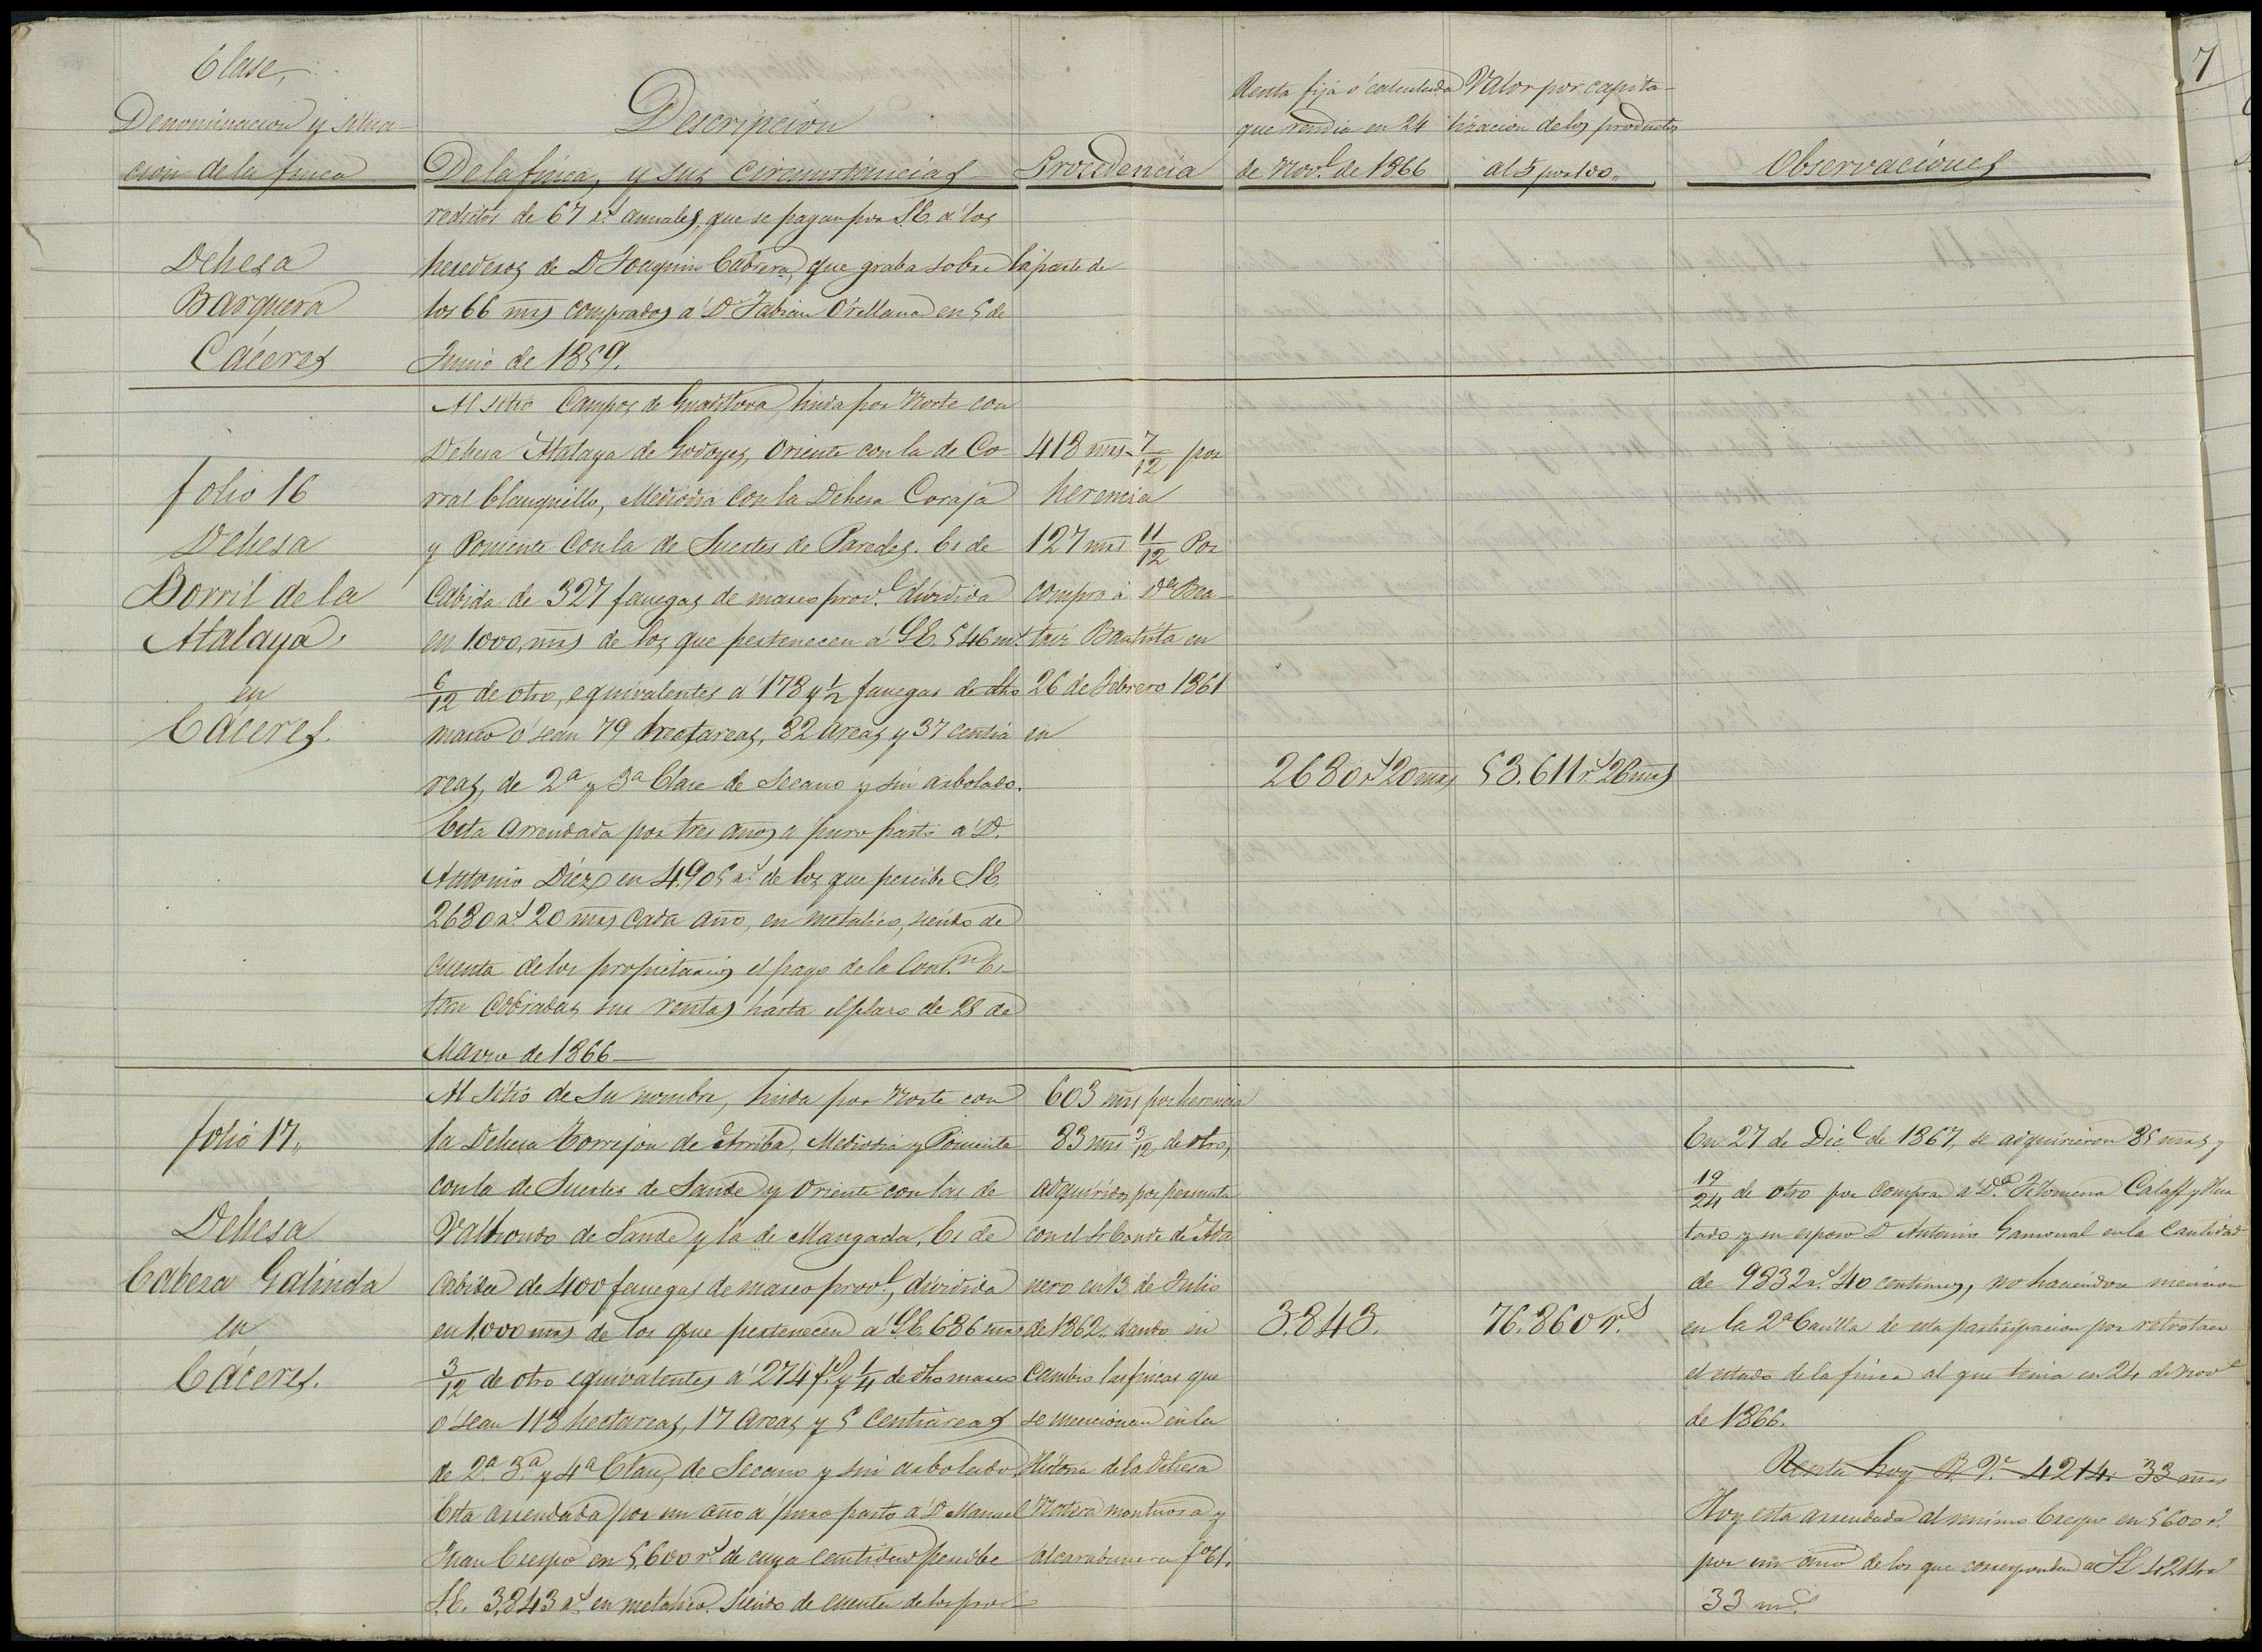 7
Clase,
Denominacion y situa-
cion de la finca
Descripcion
De la finca, y sus circunstancias
Procedencia
Renta fija ó calculada
que rendia en 24
de Nov.e de 1866
Valor por capita-
lizacion de los productos
al 5 por 100,,
Observaciones
Dehesa
Barquera
Cáceres
reditos de 67 r.s anuales, que se pagan por S.E. á los
herederos de D Joaquin Cabrera, que graba sobre la parte de
los 66 mrs comprados á D. Fabian Orellana en 5 de
Junio de 1859.
folio 16
Dehesa
Borril de la
Atalaya,
en
Cáceres.
Al sitio Campos de Guaditoca, linda por Norte con
Dehesa Atalaya de Godoyes, Oriente con la de Co-
rral Blanquillo, Mediodia con la Dehesa Coraja
y Poniente con la de Suertes de Paredes. Es de
Cabida de 327 fanegas de marco prov.l dividida
en 1.000, mrs de los que pertenecen á S.E. 546 m.s
6/12 de otro, equivalentes á 178 y 1/2 fanegas de dho
marco ó sean 79 hectareas, 82 areas y 37 centia
reas, de 2ª y 3ª Clase de Secano y sin arbolado.
Esta arrendada por tres años a puro pasto a D.
Antonio Diez en 4.905 r.s de los que percibe S.E.
2680 r.s 20 mrs cada año, en metalico, siendo de
cuenta de los propietarios el pago de la Cont.n Es-
tan cobradas sus rentas hasta el plazo de 28 de
Marzo de 1866
418 mrs 7/12 por
herencia
127 mrs 11/12 Por
compra á Dª Bea-
triz Bautista en
26 de Febrero 1861
en
2680 r.s 20 mrs
53.611 r.s 26 mrs
folio 17,,
Dehesa
Cabeza Galinda
en
Cáceres.
Al Sitio de su nombre, linda por Norte con
la Dehesa Torrejon de Arriba, Mediodia y Poniente
con la de Suertes de Sande y Oriente con las de
Valhondo de Sande y la de Mangada, Es de
Cabida de 400 fanegas de marco prov.l, dividida
en 1.000 mrs de los que pertenecen á S.E. 686 mrs
3/12 de otro equivalentes á 274 f.s y 1/4 de dho marco
ó sean 118 hectareas, 17 areas y 5 centiareas
de 2ª 3ª y 4ª Clase, de Secano y sin arbolado.
Esta arrendada por un año a puro pasto a D Manuel
Juan Crespo en 5,600 r.s de cuya cantidad percibe
S.E. 3,843 r.s en metalico. siendo de cuenta de los pro
603 mrs por herencia
83 mrs 3/12 de otro,
adquiridos por permuta
con el Sr Conde de Ada
nero en 13 de Julio
de 1862. dando en
Cambio las fincas que
se mencionan en la
Historia de la Dehesa
Notera montuosa y
alcarabunera fº 61.
3.843.
76.860 r.s
En 27 de Dic.e de 1867, se adquirieron 85 mrs y
19/24 de otro por compra á D.ª Filomena Calaff y Hur
tado y su esposo D Antonio Gamonal en la Cantidad
de 9832 r.s 40 centimos, no haciendose mencion
en la 2ª Casilla de esta participacion por retrotaer
el estado de la finca al que tenia en 24 de Nov.e
de 1866.
Renta hoy 4214. 33 mrs
Hoy esta arrendada al mismo Crespo en 5600 r.s
por un año de los que corresponden a S.E. 4214 r.s
33 m.s